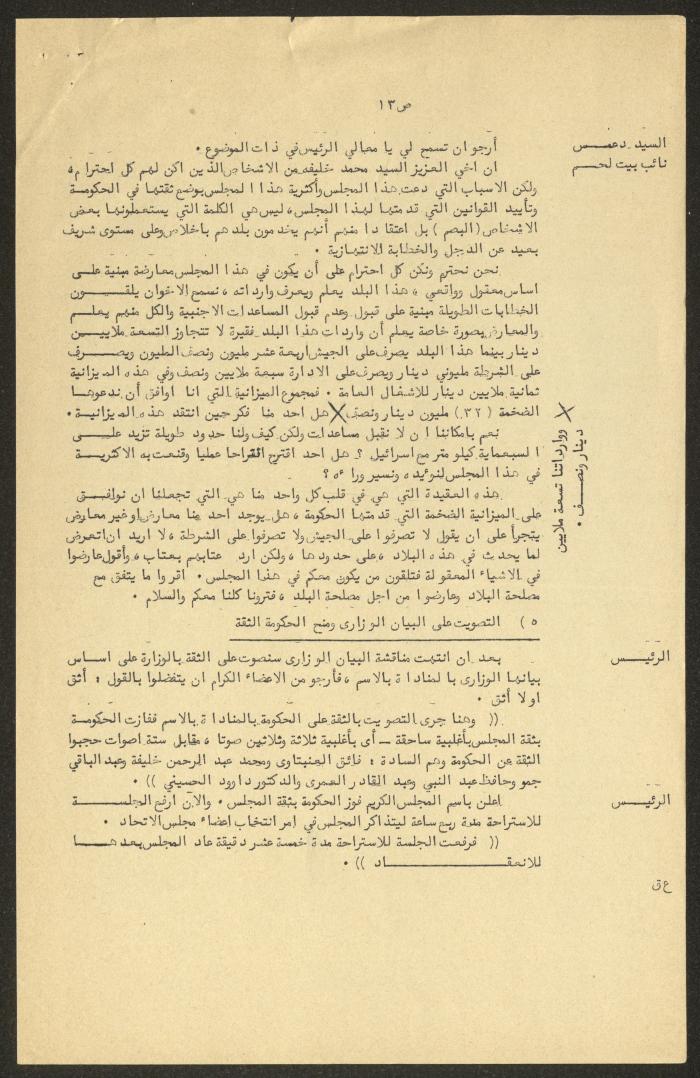 ص ١٣
السيد دعمس
نائب بيت لحم
أرجو ان تسمح لي يا معالي الرئيس في ذات الموضوع .
ان اخي العزيز السيد محمد خليفه من الاشخاص الذين اكن لهم كل احترام ،
ولكن الاسباب التي دعت هذا المجلس وأكثرية هذا المجلس بوضع ثقتها في الحكومة
وتأييد القوانين التي قدمتها لهذا المجلس ، ليس هي الكلمة التي يستعملونها بعض
الاشخاص ( البصم ) بل اعتقادا منهم أنهم يخدمون بلدهم باخلاص وعلى مستوى شريف
بعيد عن الدجل والخطابة الانتهازية .
نحن نحترم ونكن كل احترام على أن يكون في هذا المجلس معارضة مبنية على
اساس معقول وواقعي ، هذا البلد يعلم ويعرف وارداته ، نسمع الاخوان يلقون
الخطابات الطويلة مبنية على قبول وعدم قبول المساعدات الاجنبية والكل منهم يعلم
والمعارض بصورة خاصة يعلم أن واردات هذا البلد فقيرة لا تتجاوز التسعة ملايين
دينار بينما هذا البلد يصرف على الجيش اربعة عشر مليون ونصف المليون ويصرف
على الشرطة مليوني دينار ويصرف على الادارة سبعة ملايين ونصف وفي هذه الميزانية
ثمانية ملايين دينار للاشغال العامة . فمجموع الميزانية التي انا اوافق أن ندعوها
الضخمة ( ٣٢ ) مليون دينار ونصف X هل احد منا فكر حين انتقد هذه الميزانية .
X ووارداتنا تسعة ملايين
دينار ونصف .
نعم بامكاننا ان لا نقبل مساعدات ولكن كيف ولنا حدود طويلة تزيد على
السبعماية كيلو متر مع اسرائيل ؟ هل احد اقترح اقتراحا عمليا وقنعت به الاكثرية
في هذا المجلس لنؤيده ونسير وراءه ؟
هذه العقيدة التي هي في قلب كل واحد منا هي التي تجعلنا ان نوافق
على الميزانية الضخمة التي قدمتها الحكومة ، هل يوجد احد منا معارض او غير معارض
يتجرأ على ان يقول لا تصرفوا على الجيش ولا تصرفوا على الشرطة ، لا اريد ان اتعرض
لما يحدث في هذه البلاد ، على حدودها ، ولكن ارد عتابهم بعتاب ، وأقول عارضوا
في الاشياء المعقولة فتلقون من يكون معكم في هذا المجلس . اقروا ما يتفق مع
مصلحة البلاد وعارضوا من اجل مصلحة البلد ، فترونا كلنا معكم والسلام .
٥ ) التصويت على البيان الوزاري ومنح الحكومة الثقة
الرئيس
بعد ان انتهت مناقشة البيان الوزاري سنصوت على الثقة بالوزارة على اساس
بيانها الوزاري بالمناداة بالاسم ، فأرجو من الاعضاء الكرام ان يتفضلوا بالقول : أثق
او لا أثق .
(( وهنا جرى التصويت بالثقة على الحكومة بالمناداة بالاسم ففازت الحكومة
بثقة المجلس بأغلبية ساحقة – أى بأغلبية ثلاثة وثلاثين صوتا ، مقابل ستة اصوات حجبوا
الثقة عن الحكومة وهم السادة : فائق العنبتاوى ومحمد عبد الرحمن خليفة وعبد الباقي
جمو وحافظ عبد النبي وعبد القادر العمرى والدكتور داوود الحسيني )) .
الرئيس
اعلن باسم المجلس الكريم فوز الحكومة بثقة المجلس . والآن ارفع الجلسة
للاستراحة مدة ربع ساعة ليتذاكر المجلس في امر انتخاب اعضاء مجلس الاتحاد .
(( فرفعت الجلسة للاستراحة مدة خمسة عشر دقيقة عاد المجلس بعدها
للانعقاد )) .
ع ق